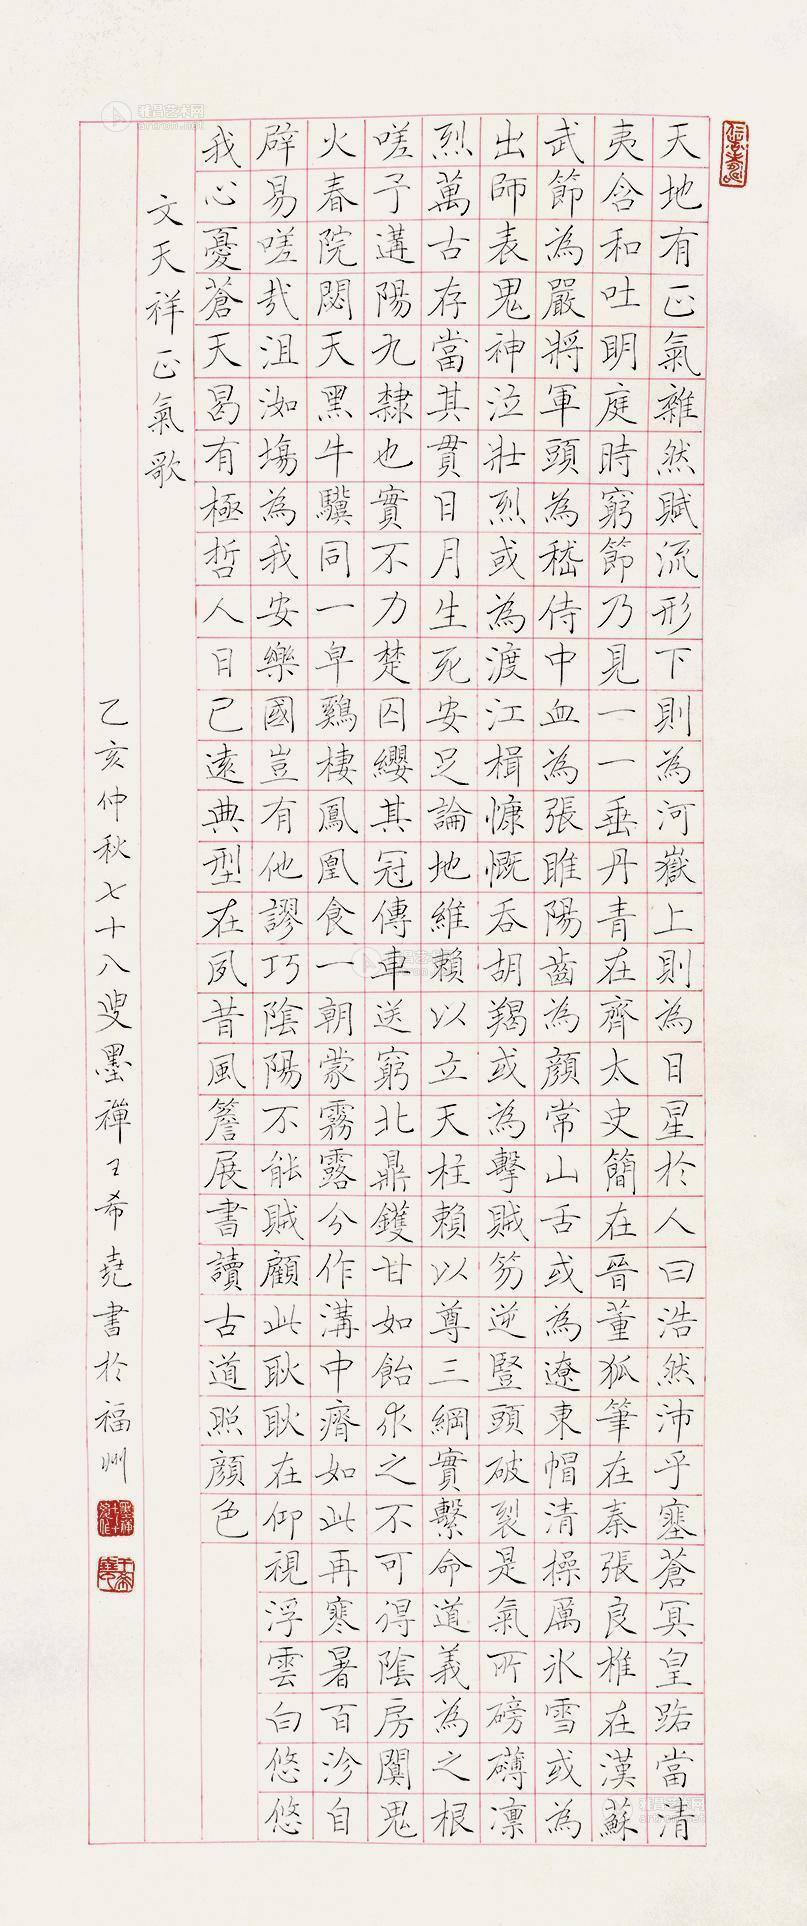 天地有正氣雜然賦流形下則為河嶽上則為日星於人曰浩然沛乎塞蒼冥皇路當清
夷含和吐明庭時窮節乃見一一垂丹青在齊太史簡在晉董狐筆在秦張良椎在漢蘇
武節為嚴將軍頭為嵇侍中血為張睢陽齒為顏常山舌或為遼東帽清操厲氷雪或為
出師表鬼神泣壯烈或為渡江楫慷慨吞胡羯或為擊賊笏逆豎頭破裂是氣所磅礴凜
烈萬古存當其貫日月生死安足論地維賴以立天柱賴以尊三綱實繫命道義為之根
嗟予遘陽九隸也實不力楚囚纓其冠傳車送窮北鼎鑊甘如飴求之不可得陰房闃鬼
火春院閟天黑牛驥同一皁鷄棲鳳凰食一朝蒙霧露分作溝中瘠如此再寒暑百沴自
辟易嗟哉沮洳塲為我安樂國豈有他謬巧陰陽不能賊顧此耿耿在仰視浮雲白悠悠
我心憂蒼天曷有極哲人日已遠典型在夙昔風簷展書讀古道照顏色
文天祥正氣歌
乙亥仲秋七十八叟墨禪王希堯書於福州
雅昌艺术网
artron.net